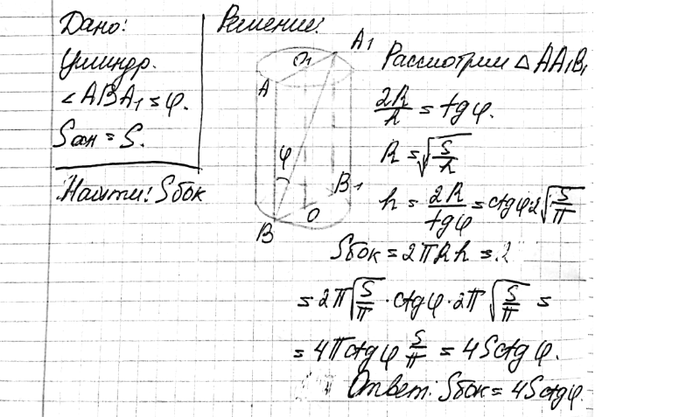 Дано:
Цилиндр.
∠ABA₁ = φ.
Sосн = S.
Найти: Sбок
Решение:
A₁
O₁
A
φ
B₁
O
B
Рассмотрим △ AA₁B₁
2R/h = tgφ.
R = √(S/π)
h = 2R/tgφ = ctgφ·2√(S/π)
Sбок = 2πRh = 2
= 2π√(S/π) · ctgφ · 2π√(S/π) =
= 4πctgφ S/π = 4Sctgφ.
Ответ: Sбок = 4Sctgφ.